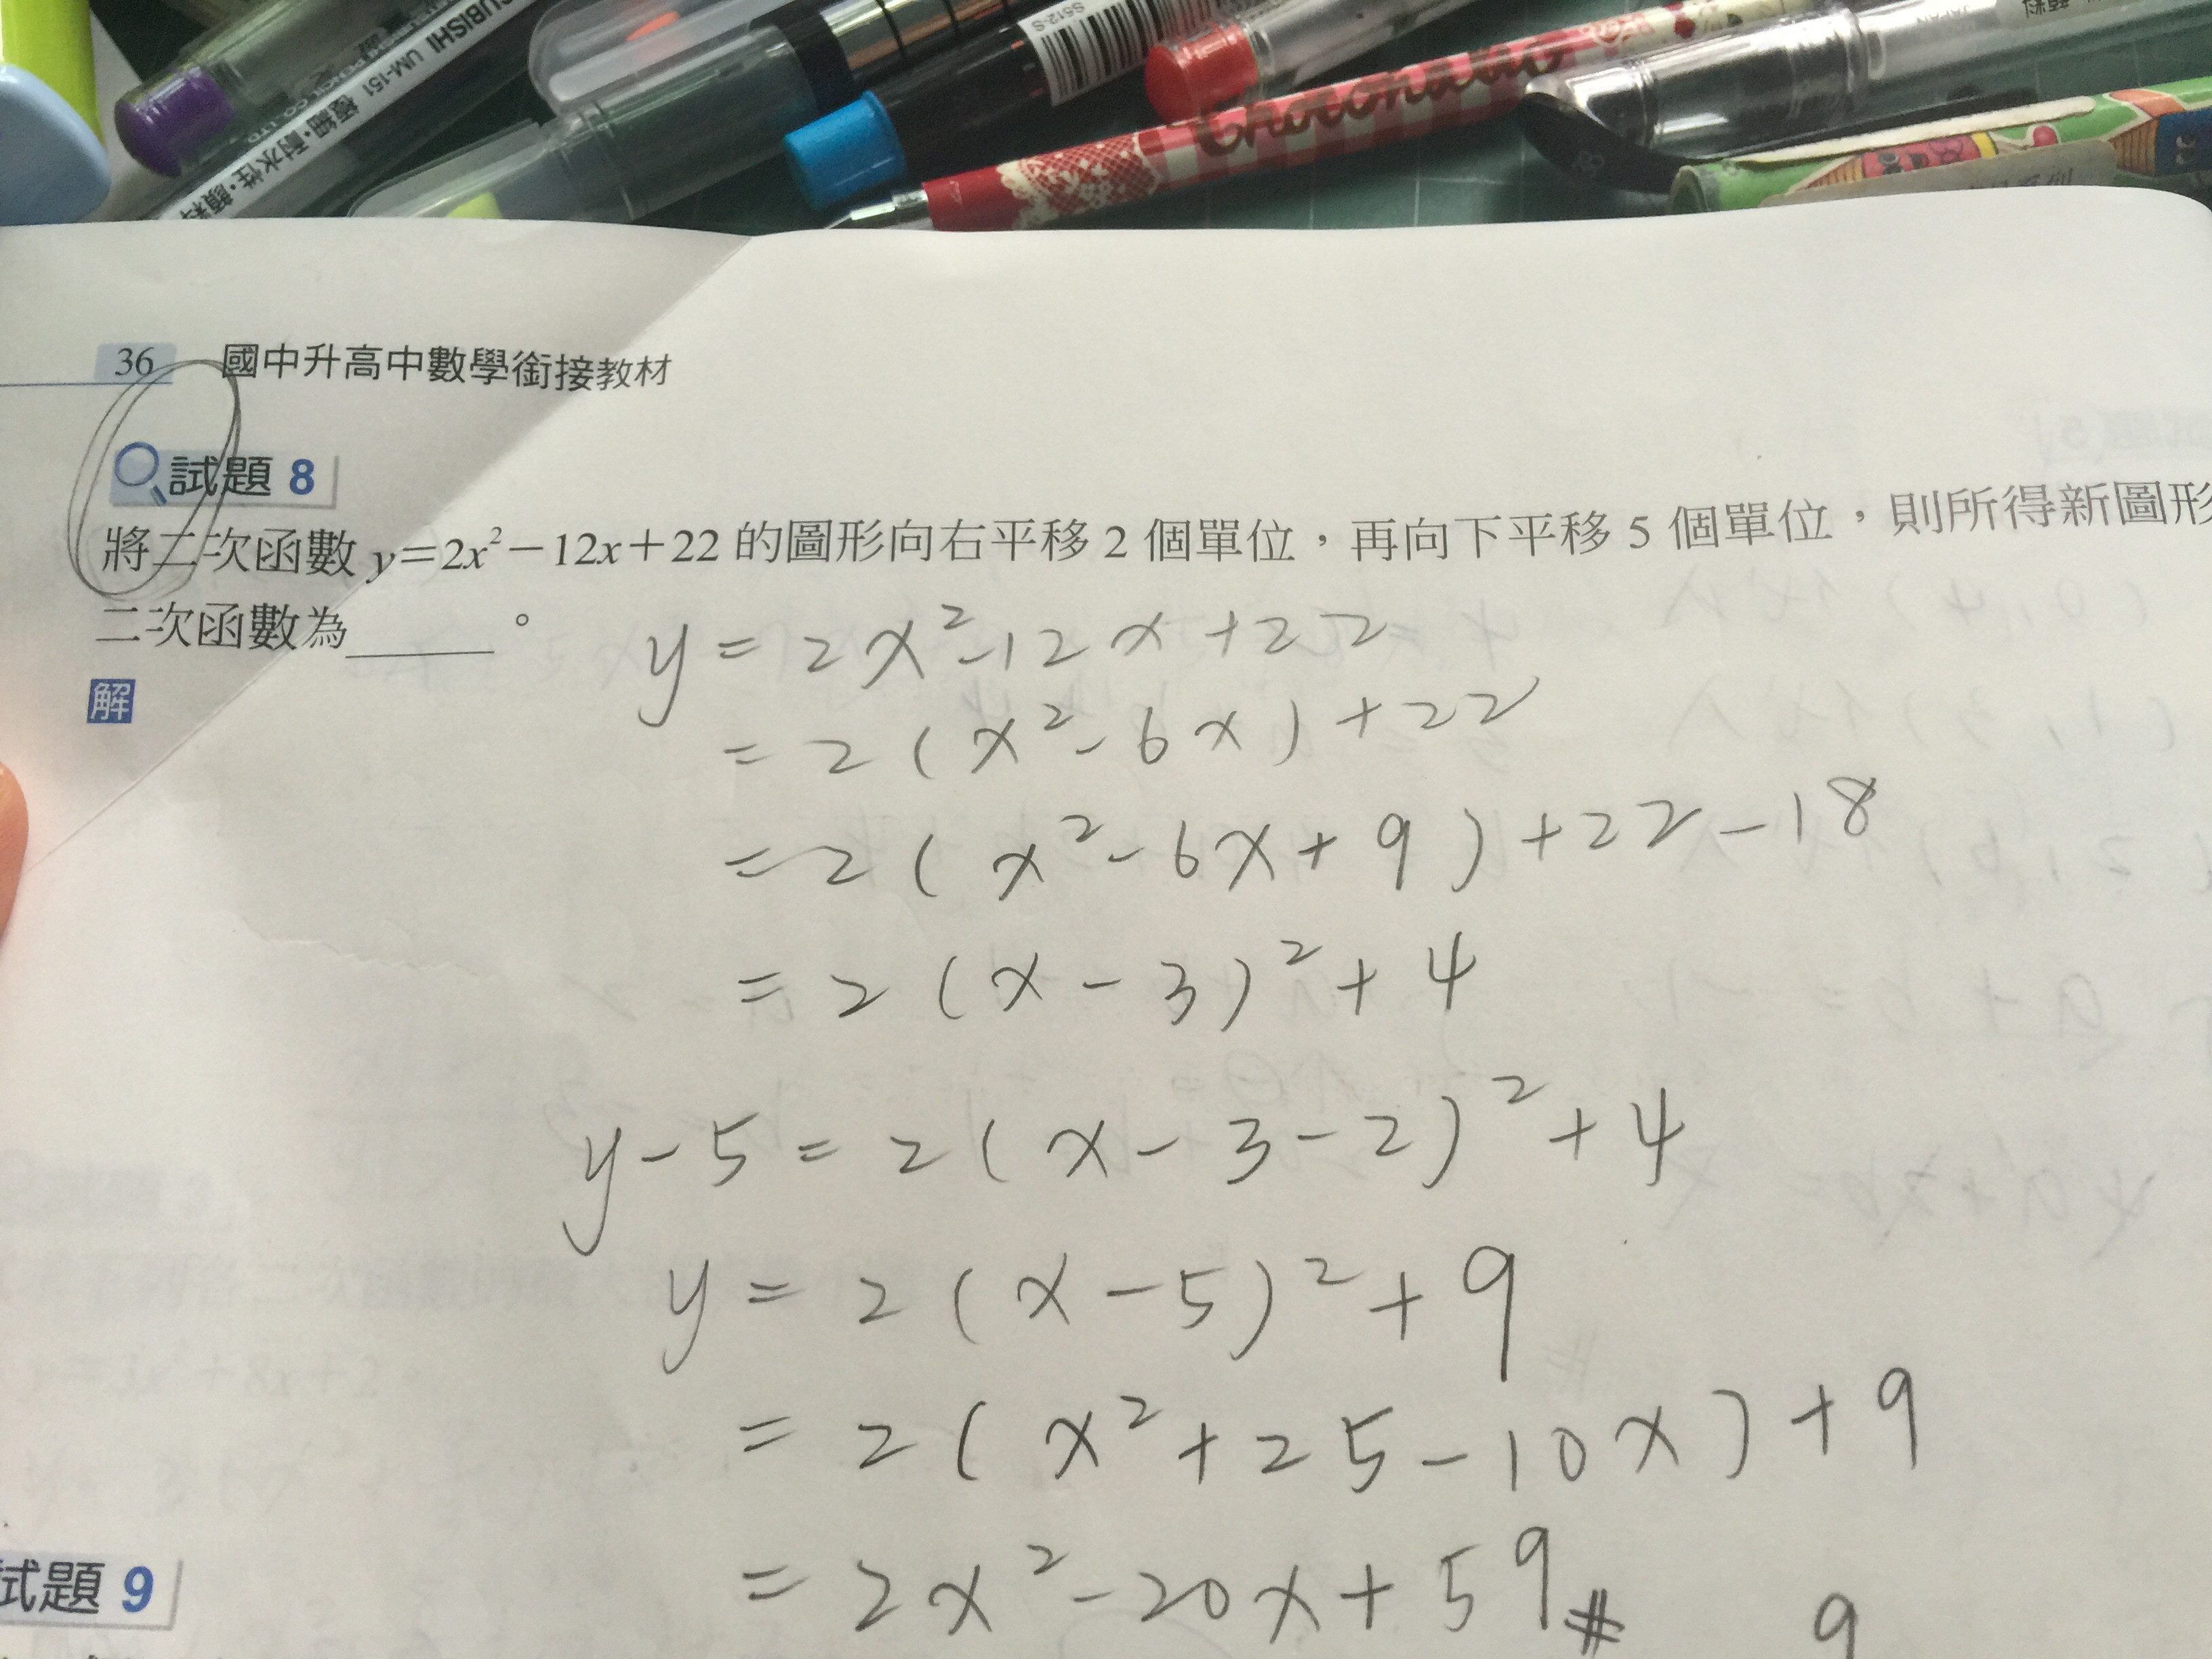 SUBISHI UM-151 極細・耐水性・顔料
S512-S
Chocolate
JAPAN
36 國中升高中數學銜接教材
試題 8
將二次函數 y=2x²−12x+22 的圖形向右平移 2 個單位,再向下平移 5 個單位,則所得新圖形
二次函數為______。
解
y = 2x²-12x+22
= 2(x²-6x)+22
= 2(x²-6x+9)+22-18
= 2(x-3)²+4
y-5 = 2(x-3-2)²+4
y = 2(x-5)²+9
= 2(x²+25-10x)+9
= 2x²-20x+59#
試題 9
9